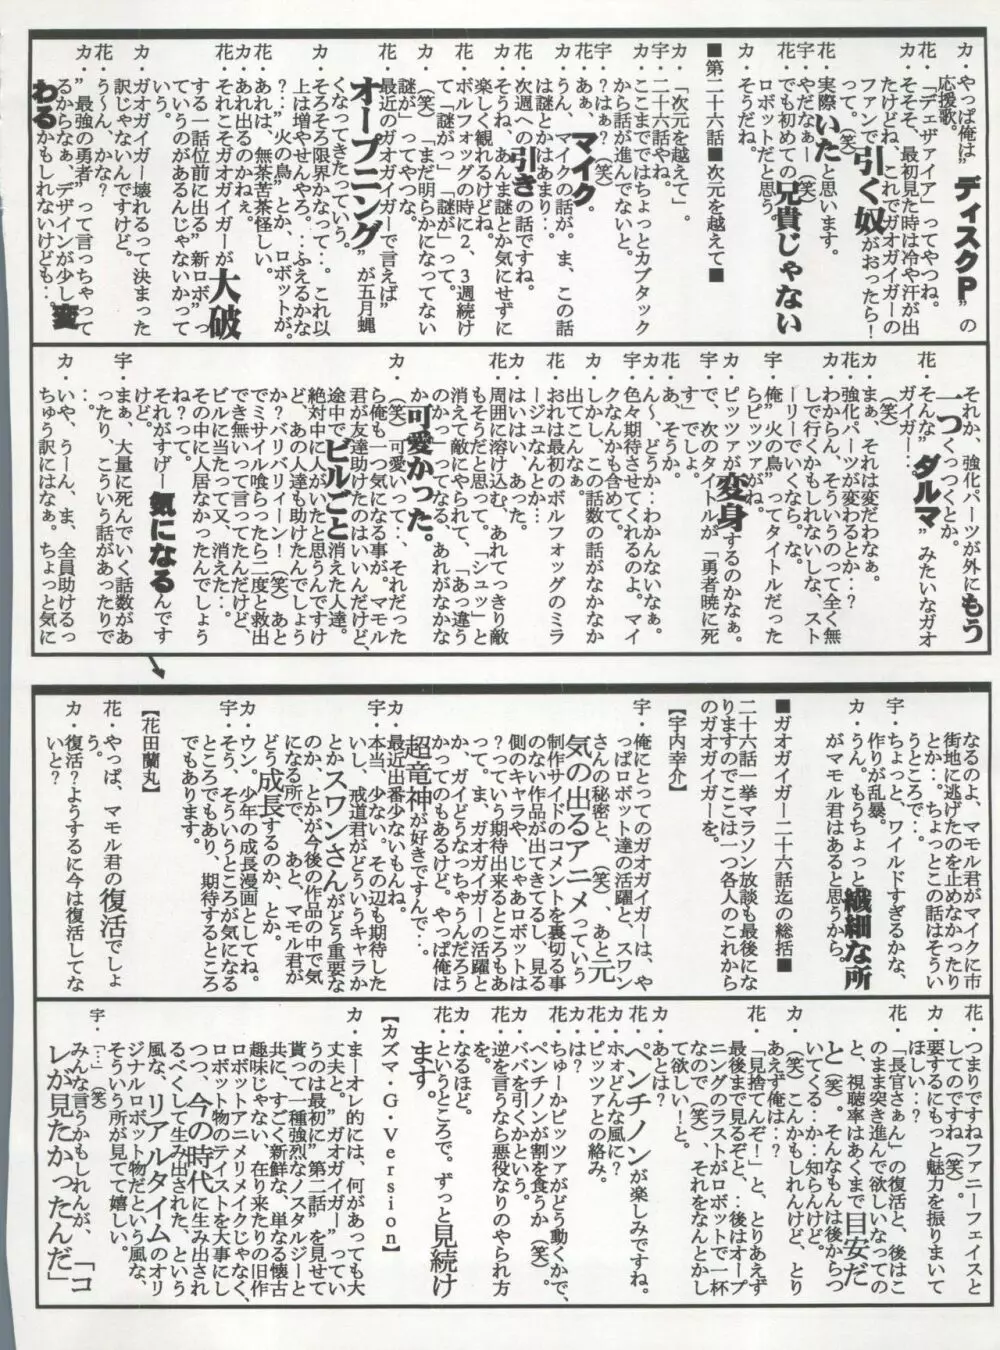 カ・やっぱ俺は”ディスクP”の
応援歌。
花・「デェザァイア」ってやつね。
カ・そそそ、最初見た時は冷や汗が出
たけどね、これでガオガイガーの
ファンで引く奴がおったら！
って。（笑）
花・実際いたと思います。
カ・やだなぁー（笑）
花・でも初めての兄貴じゃない
ロボットだと思う。
カ・そうだね。
■第二十六話■次元を越えて■
カ・「次元を越えて」。
宇・二十六話やね。
カ・ここまでではちょっとカブタック
から話が進んでないと。
宇・？はぁ？（笑）
花・あぁ、マイク。
カ・うん、マイクの話が。ま、この話
は謎とかはあまり‥。
花・次週への引きの話ですね。
カ・そうね、あんま謎とか気にせずに
楽しく観れるけどね。
花・ボルフォッグの時に２、３週続け
て「謎がっ」「謎が」って。
カ・（笑）「まだ明らかになってない
謎が」ってやつな。
花・最近のガオガイガーで言えば”
オープニング”が五月蝿
くなってきたっていう。
カ・そろそろ限界かなって‥。これ以
上は増やせんやろ、‥ふえるかな
？‥”火の鳥”とか、ロボットが。
花・あれは、無茶苦茶怪しい。
カ・あれ出るのかねぇ。
花・それこそガオガイガーが大破
する一話位前に出る”新ロボ”っ
ていうのがあるんじゃないかって
いう。
カ・ガオガイガー壊れるって決まった
訳じゃないんですけど。
花・う～ん、かな？
カ・”最強の勇者”って言っちゃって
るからなぁ。デザインが少し変
わるかもしれないけども‥。
それか、強化パーツが外にもう
一つくっつくとか。
花・そんな”ダルマ”みたいなガオ
ガイガー‥
（笑）
カ・まぁ、それは変だわなぁ。
花・強化パーツが変わるとか‥？
カ・わからん、そういうのって全く無
しで行くかもしれないしな、スト
ーリーでいくなら。な。
宇・俺”火の鳥”ってタイトルだった
らピッツァがね。
カ・ピッツァが変身するのかなぁ。
宇・で、次のタイトルが「勇者暁に死
す」で。
花・あ、そうか。
カ・ん～、どうか‥わかんないなぁ。
宇・色々期待させてくれるのよ。マイ
クなんかも含めて。
カ・しかし、この話数の話がなかなか
出てこんなぁ。
花・お前は最初のボルフォッグのミラ
ージュなんとか…
カ・はいはい、あった。
花・周囲に溶け込む、あれてっきり敵
もそうだと思って。「シュッ」と
消えて敵にやられて、「あっ違う
のかっ」ってなる。あれがなかな
か可愛かった。
カ・（笑）可愛いって‥、それだった
ら俺も一つ気になる事が。マモル
君が友達助けたのはいいんだけど、
途中でビルごと消えた人達。
絶対中に人がいたと思うんですけ
ど、あの人達も助けたんでしょう
か？バリバリィーン！（笑）あと
でミサイル喰らったら二度と救出
でき無いって言ってたんだけど、
ビルに当たって又、消えた‥
その中に人居なかったんでしょう
ね？って。
それがすげー気になるんです
けど。
宇・まぁ、大量に死んでいく話数があ
ったり、こういう話があったりで
‥。
カ・いや、うーん、ま、全員助けるっ
ちゅう訳にはなぁ。ちょっと気に
なるのよ、マモル君がマイクに市
街地に逃げたのを止めなかったり
とか‥。ちょっとこの話はそうい
うところで‥。
宇・ちょっと、ワイルドすぎるかな、
作りが乱暴。
カ・うん。もうちょっと繊細な所
がマモル君はあると思うから。
■ガオガイガー二十六話迄の総括■
二十六話一挙マラソン放談も最後にな
りますのでここは一つ各人のこれから
のガオガイガーを。
【宇内幸介】
宇・俺にとってのガオガイガーは、や
っぱロボット達の活躍と、スワン
さんの秘密と、（笑）、あと元
気の出るアニメっていう
制作サイドのコメントを裏切る事
のない作品が出てきてるし、見る
側のキャラや、じゃあロボットは
？っていう期待出来るところもあ
って。ま、ガオガイガーの活躍と
か、ガイどうなっちゃうんだろう
かってのもあるけど。やっぱ俺は
超竜神が好きですんで‥。
カ・最近出番少ないもんね。
宇・本当、少ない。その辺も期待した
いし、戒道君がどういうキャラか
とかスワンさんがどう重要な
のか、とかが今後の作品の中で気
になる所で、あと、マモル君が
どう成長するのか、とか。
カ・ウン。少年の成長漫画としてね。
宇・そう、そういうところが気になる
ところでもあり、期待するところ
でもあります。
【花田蘭丸】
花・やっぱ、マモル君の復活でしょ
う。
カ・復活？ようするに今は復活してな
いと？
つまりですねファニーフェイスと
してのですね（笑）。
カ・要するにもっと魅力を振りまいて
ほしい‥？
花・「長官さぁん」の復活と、後はこ
のまま突き進んで欲しいなっての
と、視聴率はあくまで目安だ
と（笑）。そんなもんは後からつ
いてくる‥か‥知らんけど。
カ・（笑）こんかもしれんけど、とり
あえず俺は‥？
花・「見捨てんぞ！」と、とりあえず
最後まで見るぞと、‥後はオープ
ニングのラストがロボットで一杯
なので（笑）、それをなんとかし
て欲しい！と。
カ・あとは？
花・ペンチノンが楽しみですね。
カ・ホォどんな風に？
花・ピッツァとの絡み。
カ・は？
花・ちゅーかピッツァがどう動くかで、
ペンチノンが割を食うか（笑）。
カ・ババを引くかという。
花・逆を言うなら悪役なりのやられ方
を。
カ・なるほど。
花・というところで。ずっと見続け
ます。
【カズマ・G・Version】
カ・まーオレ的には、何があっても大
丈夫と。”ガオガイガー”ってい
うのは最初に”第二話”を見せて
貰って一種強烈なノスタルジーと
共に、すごく新鮮な、単なる懐古
趣味じゃない、在り来たりの旧作
ロボットアニメリメイクじゃなく、
ロボット物のテイストを大事にし
つつ、今の時代に生み出され
るべくして生み出された、という
風な、リアルタイムのオリ
ジナルロボット物だという風な、
そういう所が見てて嬉しい。
宇・「…」（笑）
みんな言うかもしれんが、「コ
レが見たかったんだ」